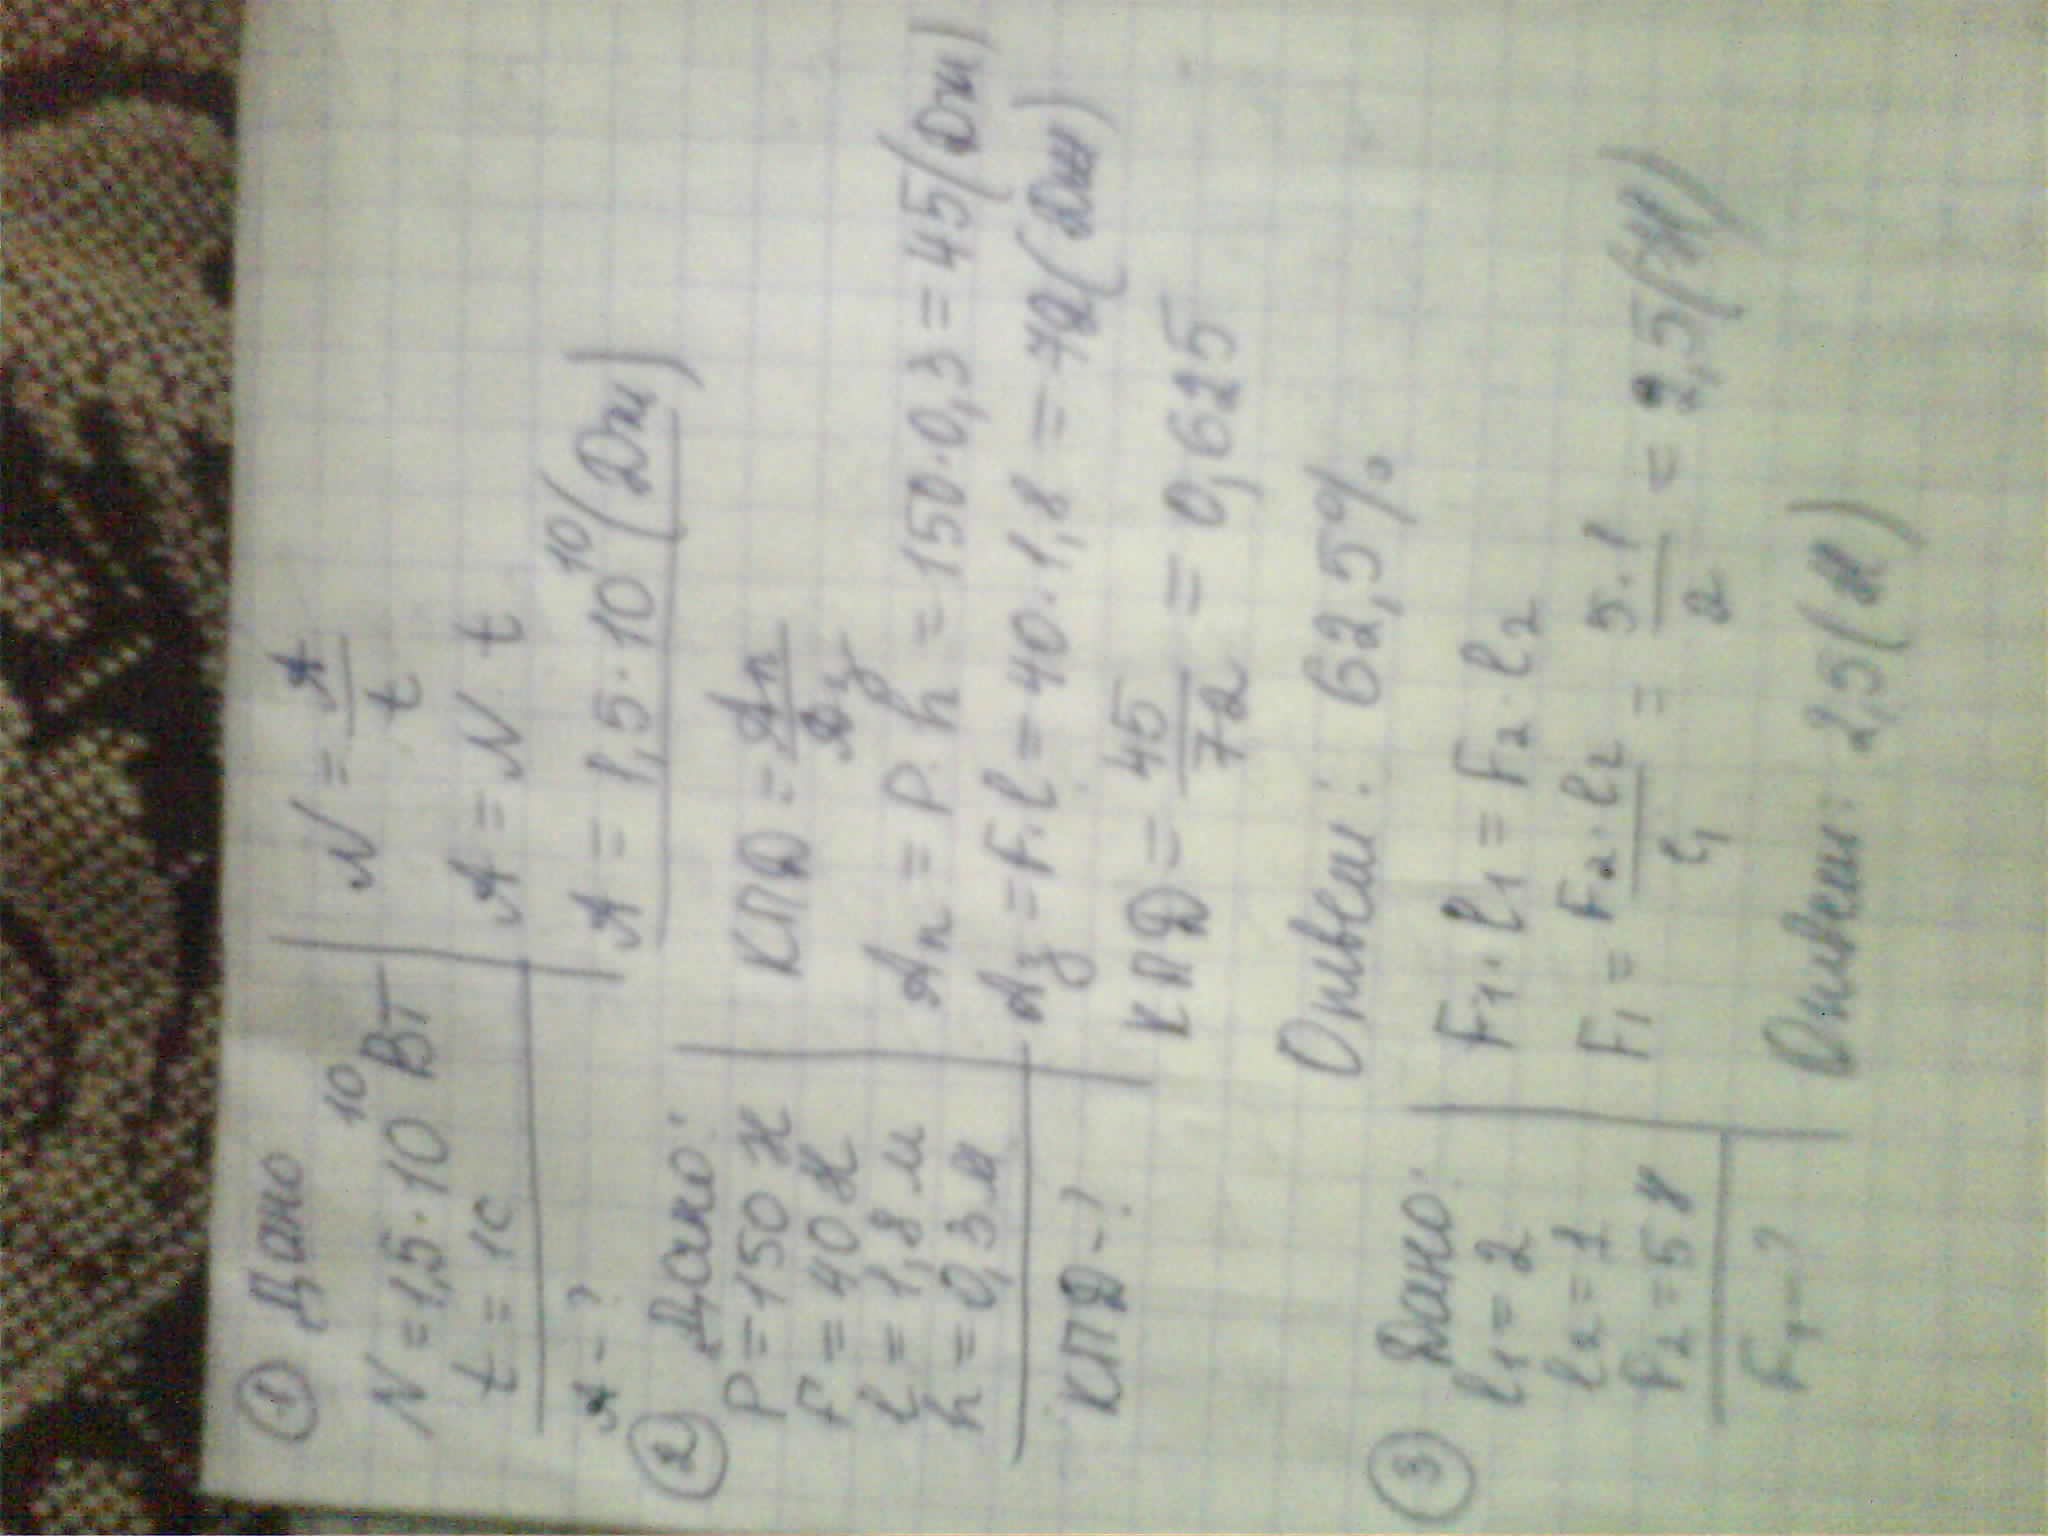 ① Дано
N = 1,5·10¹⁰ Вт
t = 1с
A - ?
N = A/t
A = N t
A = 1,5·10¹⁰ (Дж)
② Дано:
P = 150 Н
F = 40 Н
l = 1,8 м
h = 0,3 м
КПД - ?
КПД = Aп/Aз
Aп = P·h = 150·0,3 = 45 (Дж)
Aз = F·l = 40·1,8 = 72 (Дж)
КПД = 45/72 = 0,625
Ответ: 62,5%
③ Дано:
l₁ = 2
l₂ = 1
F₂ = 5 Н
F₁ - ?
F₁·l₁ = F₂·l₂
F₁ = F₂·l₂/l₁ = 5·1/2 = 2,5 (Н)
Ответ: 2,5 (Н)